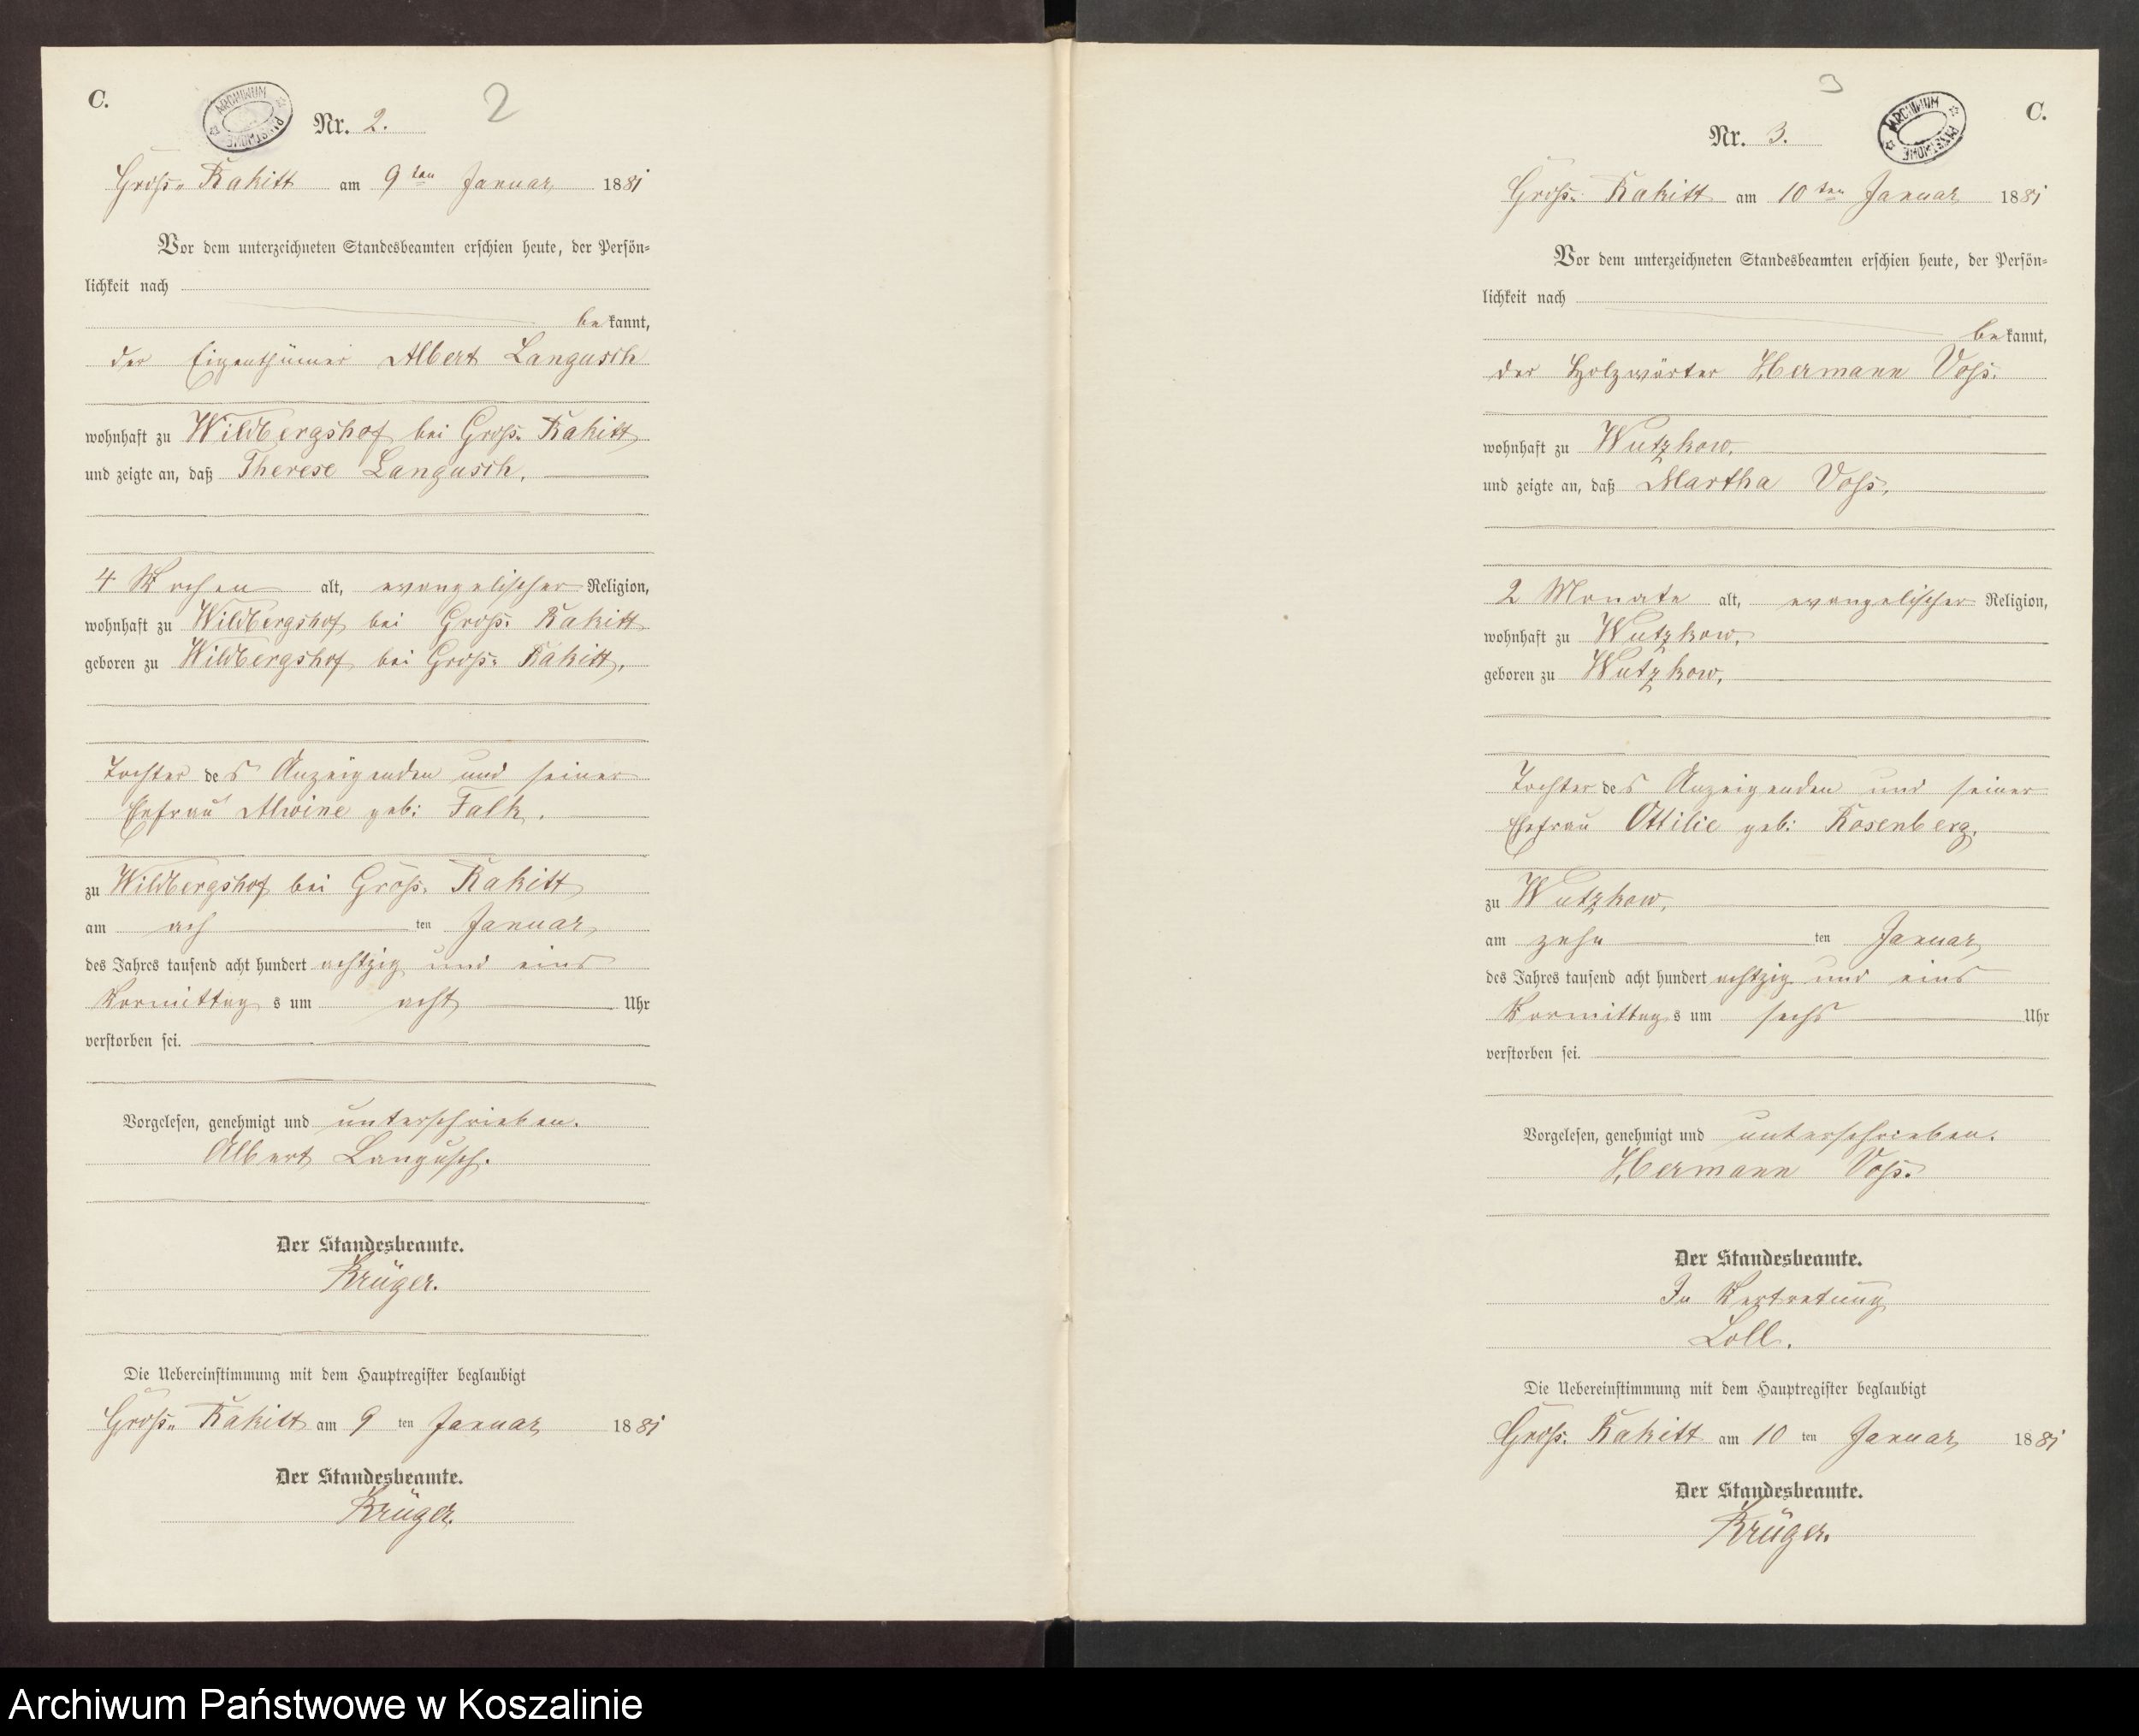 C.
ARCHIWUM PAŃSTWOWE
2
Nr. 2.
Groß-Rakitt am 9ten Januar 1881
Vor dem unterzeichneten Standesbeamten erschien heute, der Persön-
lichkeit nach
bekannt,
der Eigenthümer Albert Langusch
wohnhaft zu Wildbergshof bei Groß-Rakitt
und zeigte an, daß Therese Langusch,
4 Wochen alt, evangelischer Religion,
wohnhaft zu Wildbergshof bei Groß-Rakitt
geboren zu Wildbergshof bei Groß-Rakitt,
Tochter des Anzeigenden und seiner
Ehefrau Alwine geb: Falk.
zu Wildbergshof bei Groß-Rakitt
am ach ten Januar
des Jahres tausend acht hundert achtzig und eins
Vormittags um acht Uhr
verstorben sei.
Vorgelesen, genehmigt und unterschrieben.
Albert Langusch.
Der Standesbeamte.
Krüger.
Die Uebereinstimmung mit dem Hauptregister beglaubigt
Groß-Rakitt am 9 ten Januar 1881
Der Standesbeamte.
Krüger.
3
ARCHIWUM PAŃSTWOWE
C.
Nr. 3.
Groß-Rakitt am 10ten Januar 1881
Vor dem unterzeichneten Standesbeamten erschien heute, der Persön-
lichkeit nach
bekannt,
der Holzwärter Hermann Voß.
wohnhaft zu Wutzkow,
und zeigte an, daß Martha Voß,
2 Monate alt, evangelischer Religion,
wohnhaft zu Wutzkow,
geboren zu Wutzkow,
Tochter des Anzeigenden und seiner
Ehefrau Ottilie geb: Rosenberg.
zu Wutzkow,
am zehn ten Januar
des Jahres tausend acht hundert achtzig und eins
Vormittags um sechs Uhr
verstorben sei.
Vorgelesen, genehmigt und unterschrieben.
Hermann Voß.
Der Standesbeamte.
In Vertretung
Loll.
Die Uebereinstimmung mit dem Hauptregister beglaubigt
Groß-Rakitt am 10 ten Januar 1881
Der Standesbeamte.
Krüger.
Archiwum Państwowe w Koszalinie